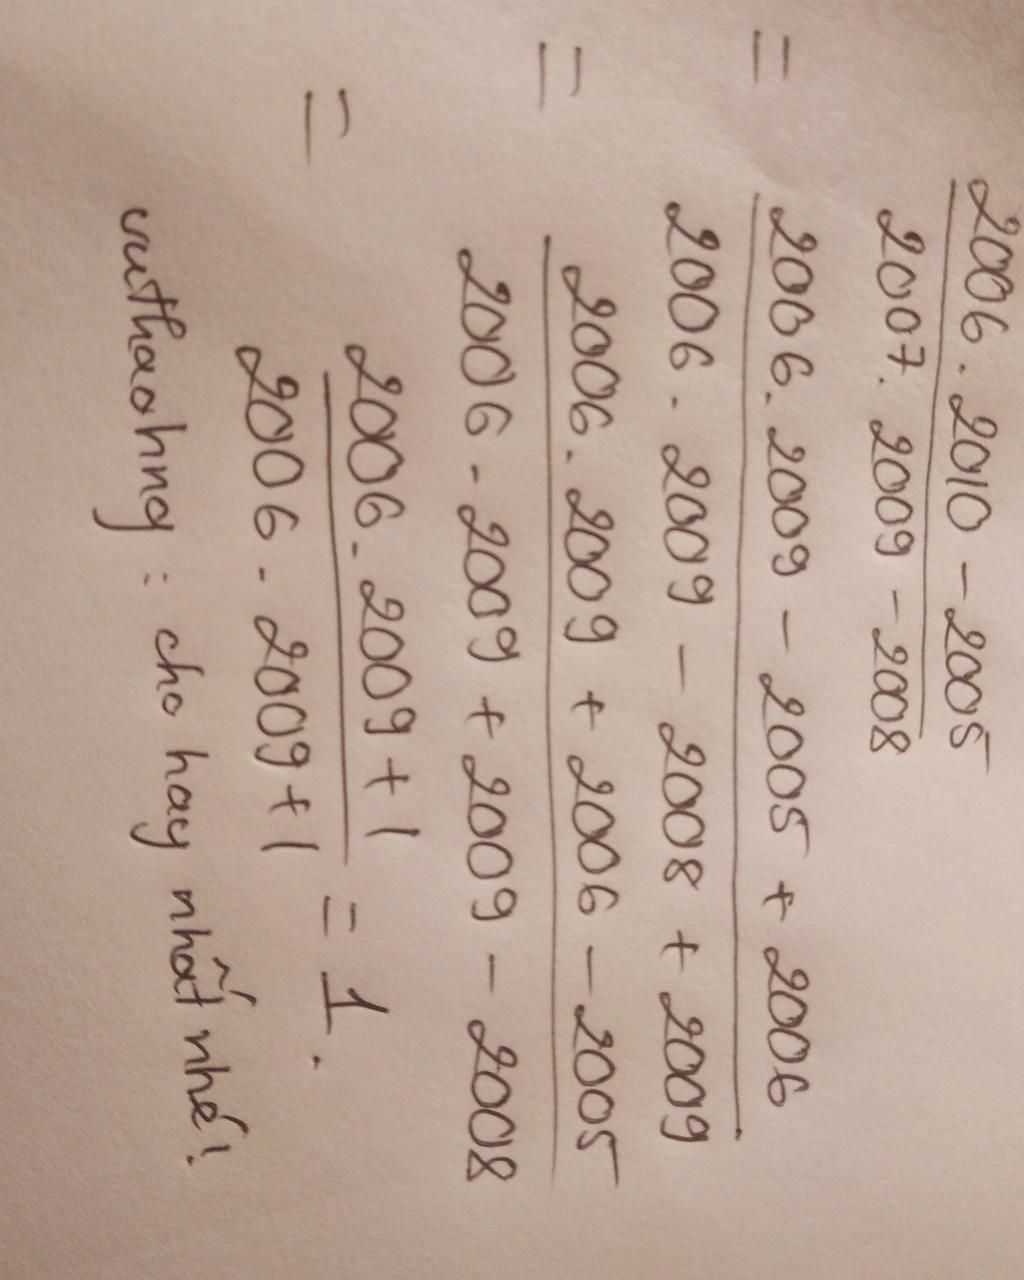 2006 . 2010 - 2005
2007 . 2009 - 2008
= 2006 . 2009 - 2005 + 2006
2006 . 2009 - 2008 + 2009
= 2006 . 2009 + 2006 - 2005
2006 . 2009 + 2009 - 2008
= 2006 . 2009 + 1 = 1.
2006 . 2009 + 1
vuthaohng : cho hay nhất nhé!